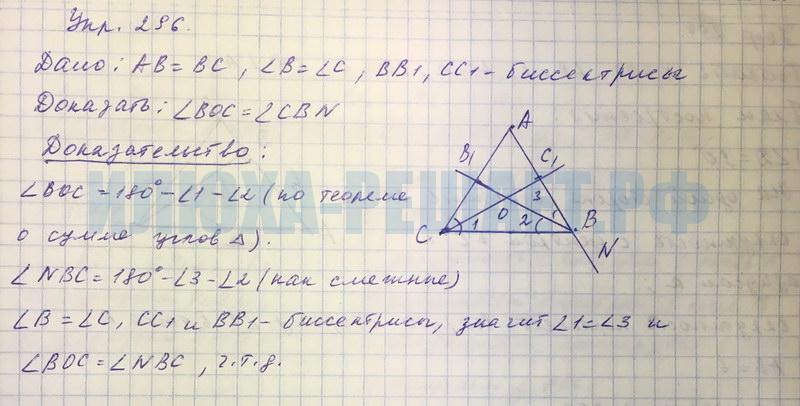 Упр. 296.
Дано: AB = BC, ∠B = ∠C, BB1, CC1 - биссектрисы
Доказать: ∠BOC = ∠CBN
Доказательство:
∠BOC = 180° - ∠1 - ∠2 (по теореме
о сумме углов Δ).
∠NBC = 180° - ∠3 - ∠2 (как смежные)
∠B = ∠C, CC1 и BB1 - биссектрисы, значит ∠1 = ∠3 и
∠BOC = ∠NBC, ч.т.д.
A
B1
C1
3
O
C
1
2
B
N
ИЛЮХА-РЕШАЕТ.РФ